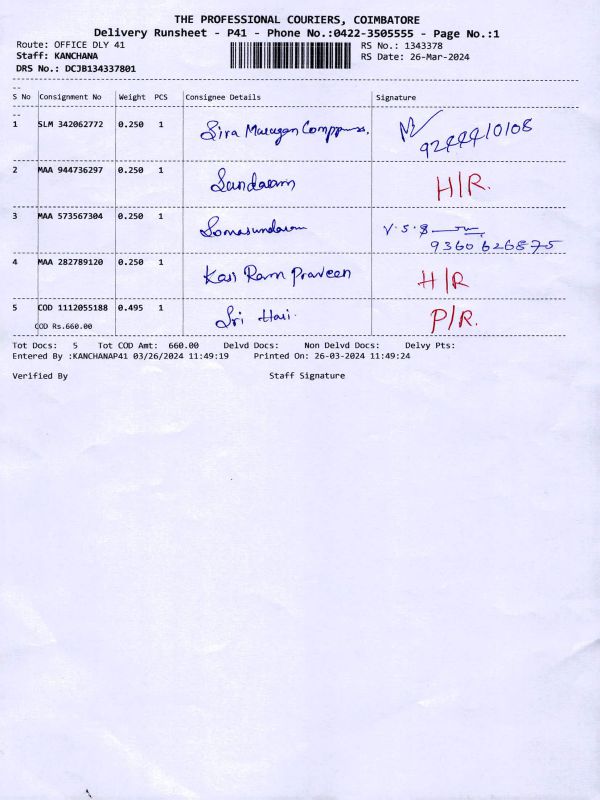 THE PROFESSIONAL COURIERS, COIMBATORE
Delivery Runsheet - P41 - Phone No.:0422-3505555 - Page No.:1
Route: OFFICE DLY 41 RS No.: 1343378
Staff: KANCHANA RS Date: 26-Mar-2024
DRS No.: DCJB134337801
S No Consignment No Weight PCS Consignee Details Signature
1 SLM 342062772 0.250 1 Siva Murugan
2 MAA 944736297 0.250 1 Sundaram H/R.
3 MAA 573567304 0.250 1 Somasundaram V.S.S
9360626875
4 MAA 282789120 0.250 1 Kasi Ram Praveen H/R
5 COD 1112055188 0.495 1 Sri Hari. P/R.
COD Rs.660.00
Tot Docs: 5 Tot COD Amt: 660.00 Delvd Docs: Non Delvd Docs: Delvy Pts:
Entered By :KANCHANAP41 03/26/2024 11:49:19 Printed On: 26-03-2024 11:49:24
Verified By Staff Signature